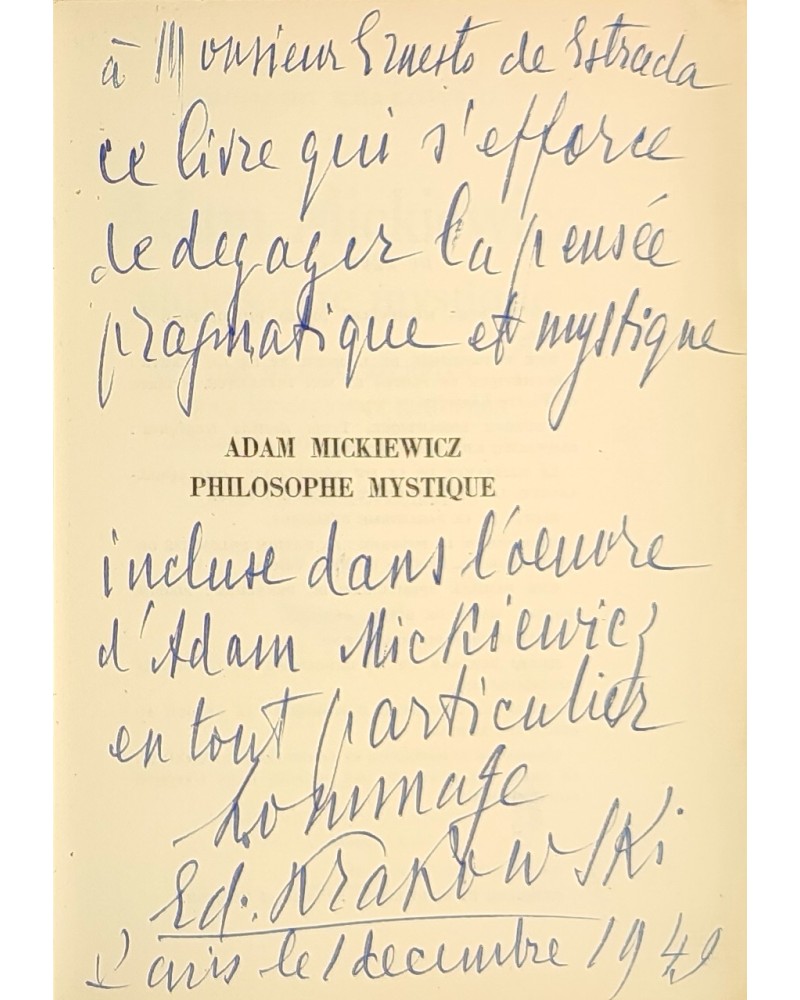 à Monsieur Ernesto de Estrada
ce livre qui s'efforce
de degager la pensée
pragmatique et mystique
ADAM MICKIEWICZ
PHILOSOPHE MYSTIQUE
incluse dans l'oeuvre
d'Adam Mickiewicz
en tout particulier
hommage
Ed. Krakowski
Paris le 1 decembre 1949